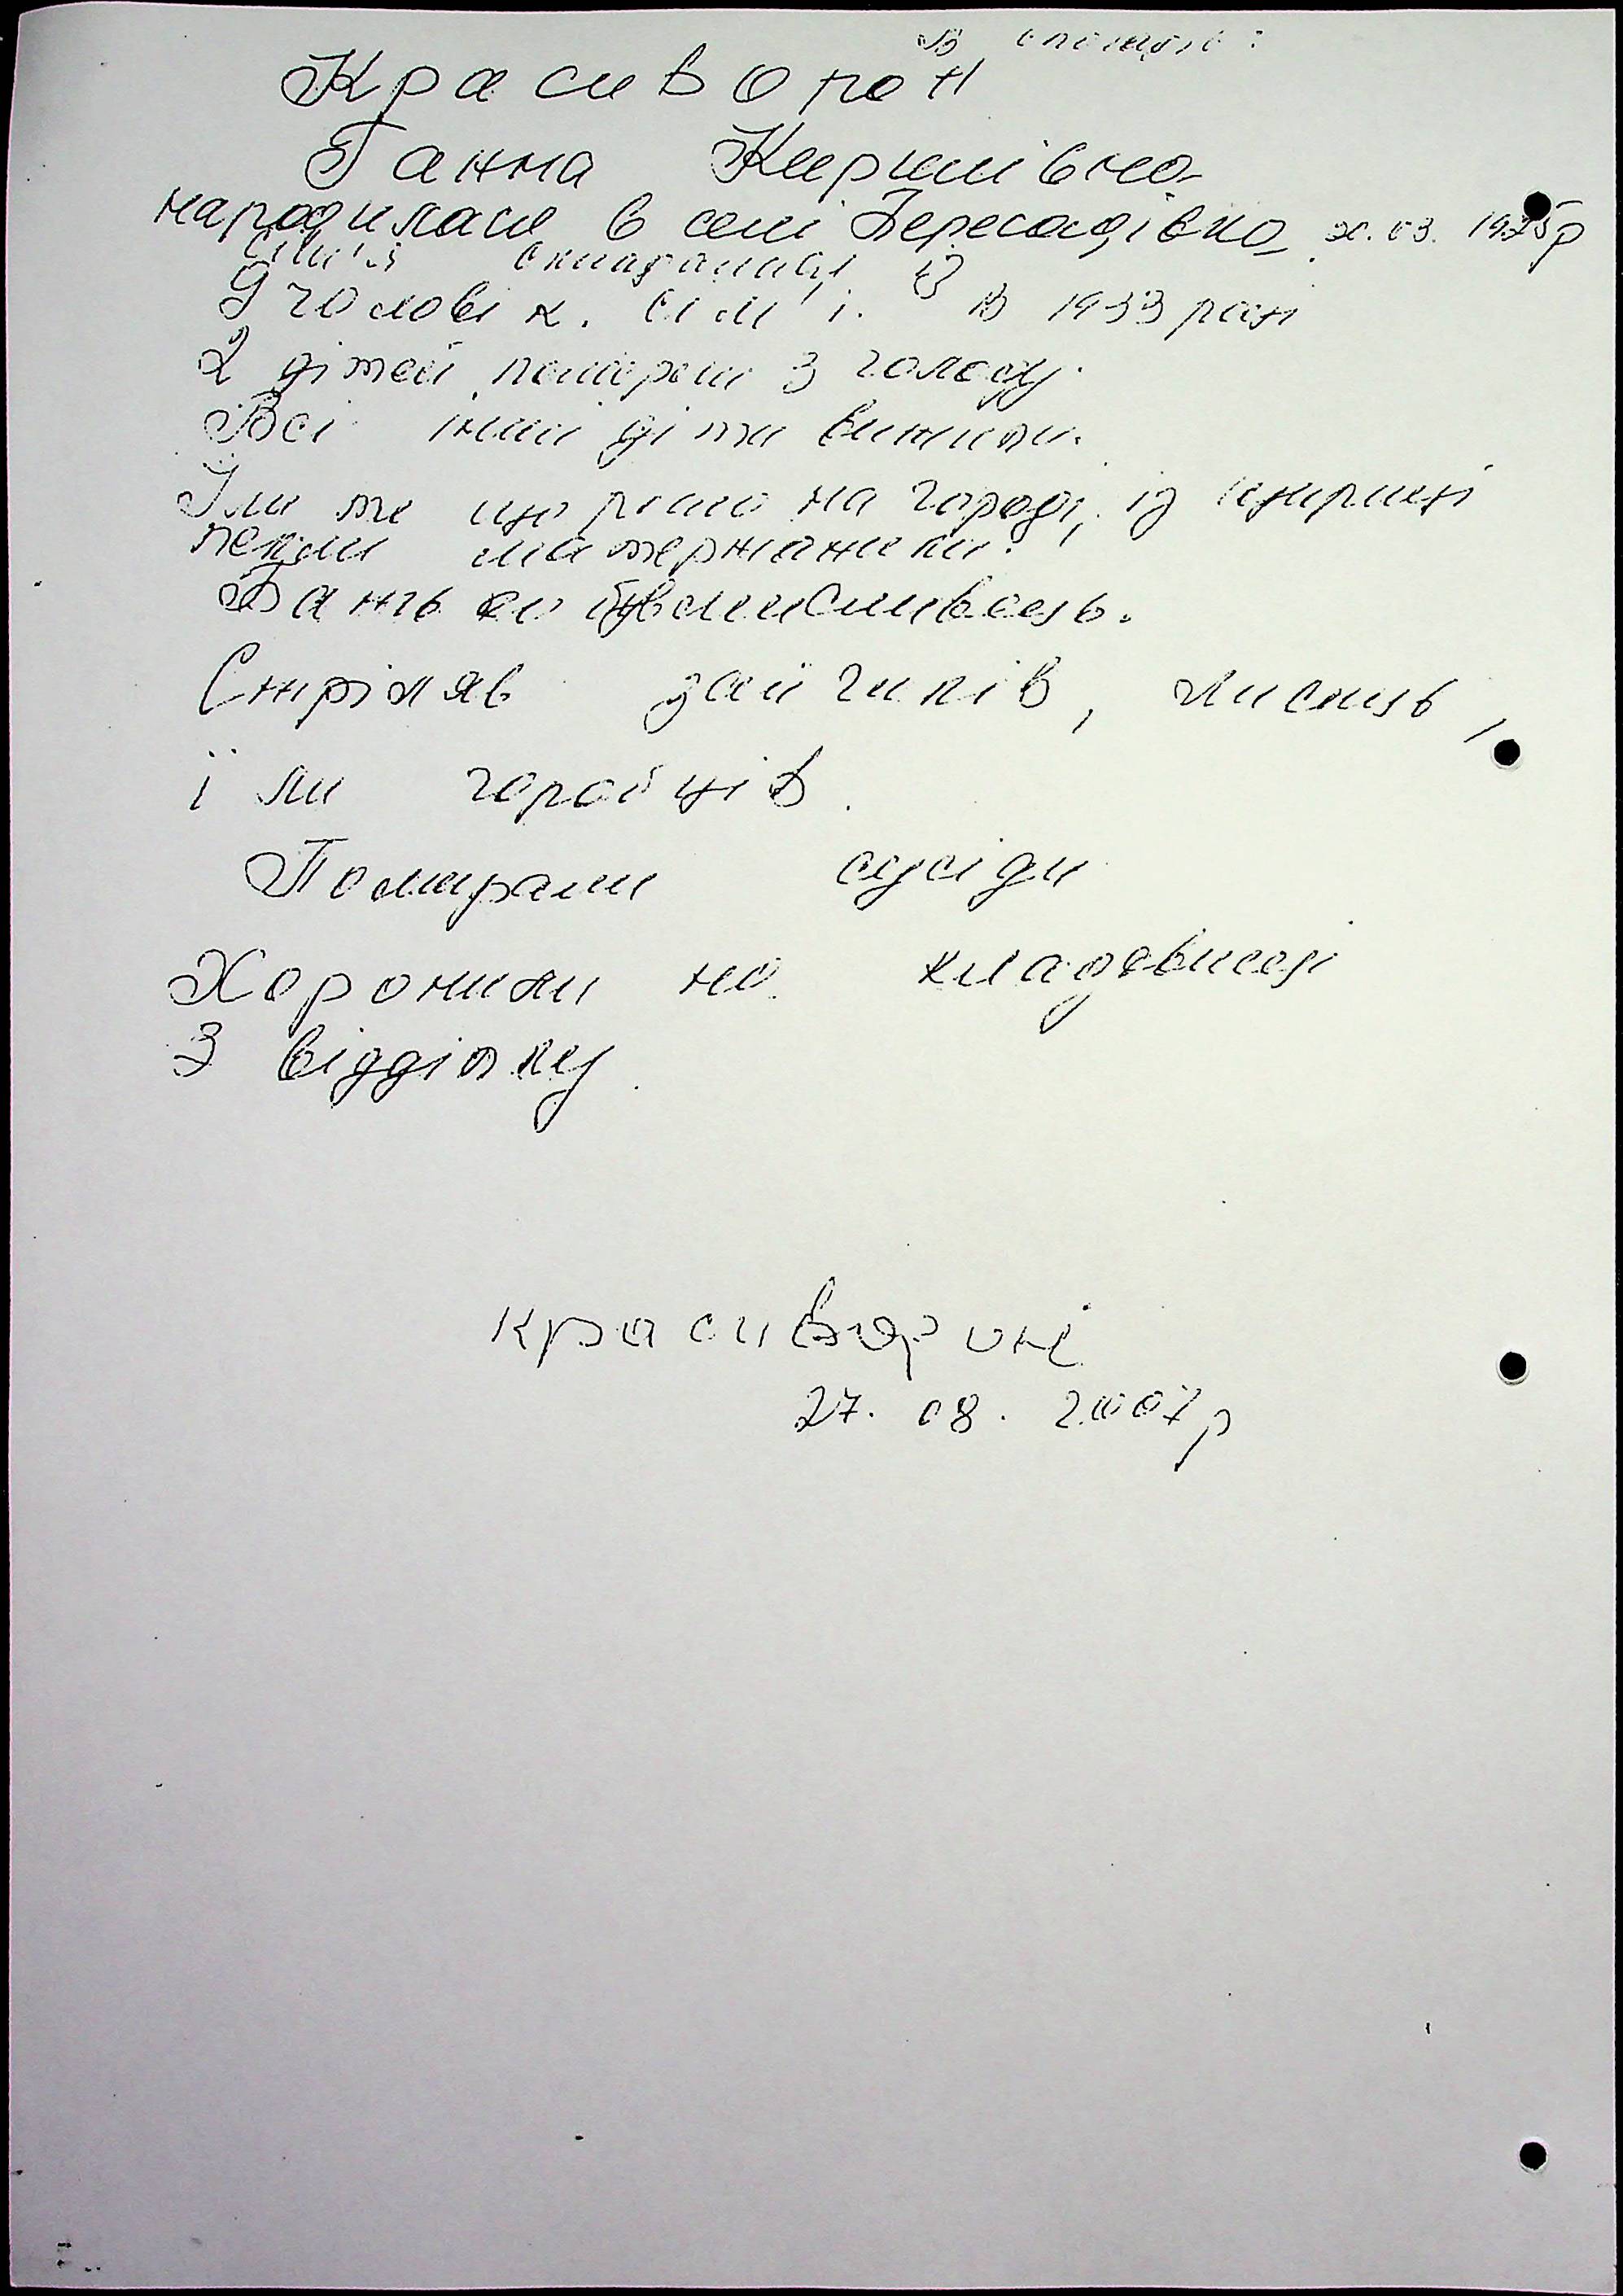 Красиворон
Ганна Кирилівна
народилася в селі Пересадівка 20.03. 1925р
Сім'я складалась із
9 чоловік. сім'ї. В 1933 році
2 дітей померли з голоду.
Всі інші діти вижили.
Їли те що росло на городі, із
пекли маторженики.
Батько
Стріляв зайчиків, лисиць,
їли горобців.
Помирали сусіди
Хоронили на кладовищі
З відділку.
красивороні
27. 08. 2007р